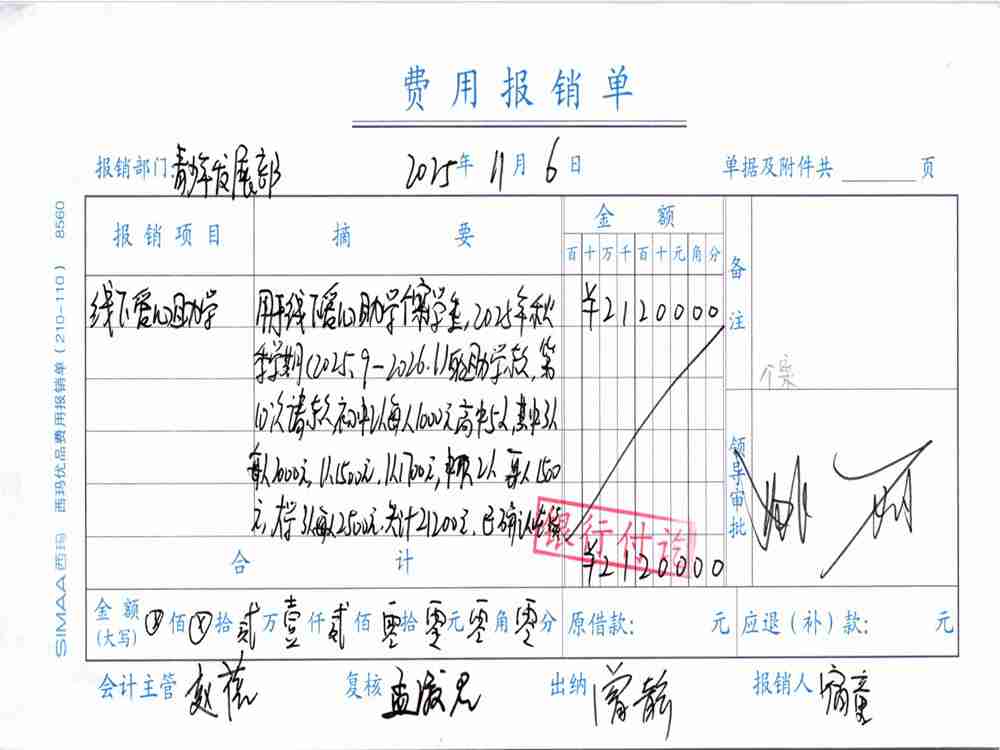 费用报销单
报销部门:青少年发展部 2025年11月6日 单据及附件共 页
报销项目 摘要 金额 备注
百十万千百十元角分
线下爱心助学 用于线下爱心助学个案学生,2025年秋 ¥2120000
季学期(2025.9-2026.1)资助学款,第
10次请款,初中2人每人1000元,高中5人,其中3人
每人1000元,1人1500元,1人1700元,中职2人每人1500
元,大学3人每人2500元,共计21200元,已确认
个案
领导审批
银行付讫
合计 ¥2120000
金额(大写) 佰 拾贰万壹仟贰佰零拾零元零角零分 原借款: 元 应退(补)款: 元
会计主管 赵蓓 复核 孟淑君 出纳 曾静 报销人
SIMAA西玛 西玛优品费用报销单(210-110) 8560